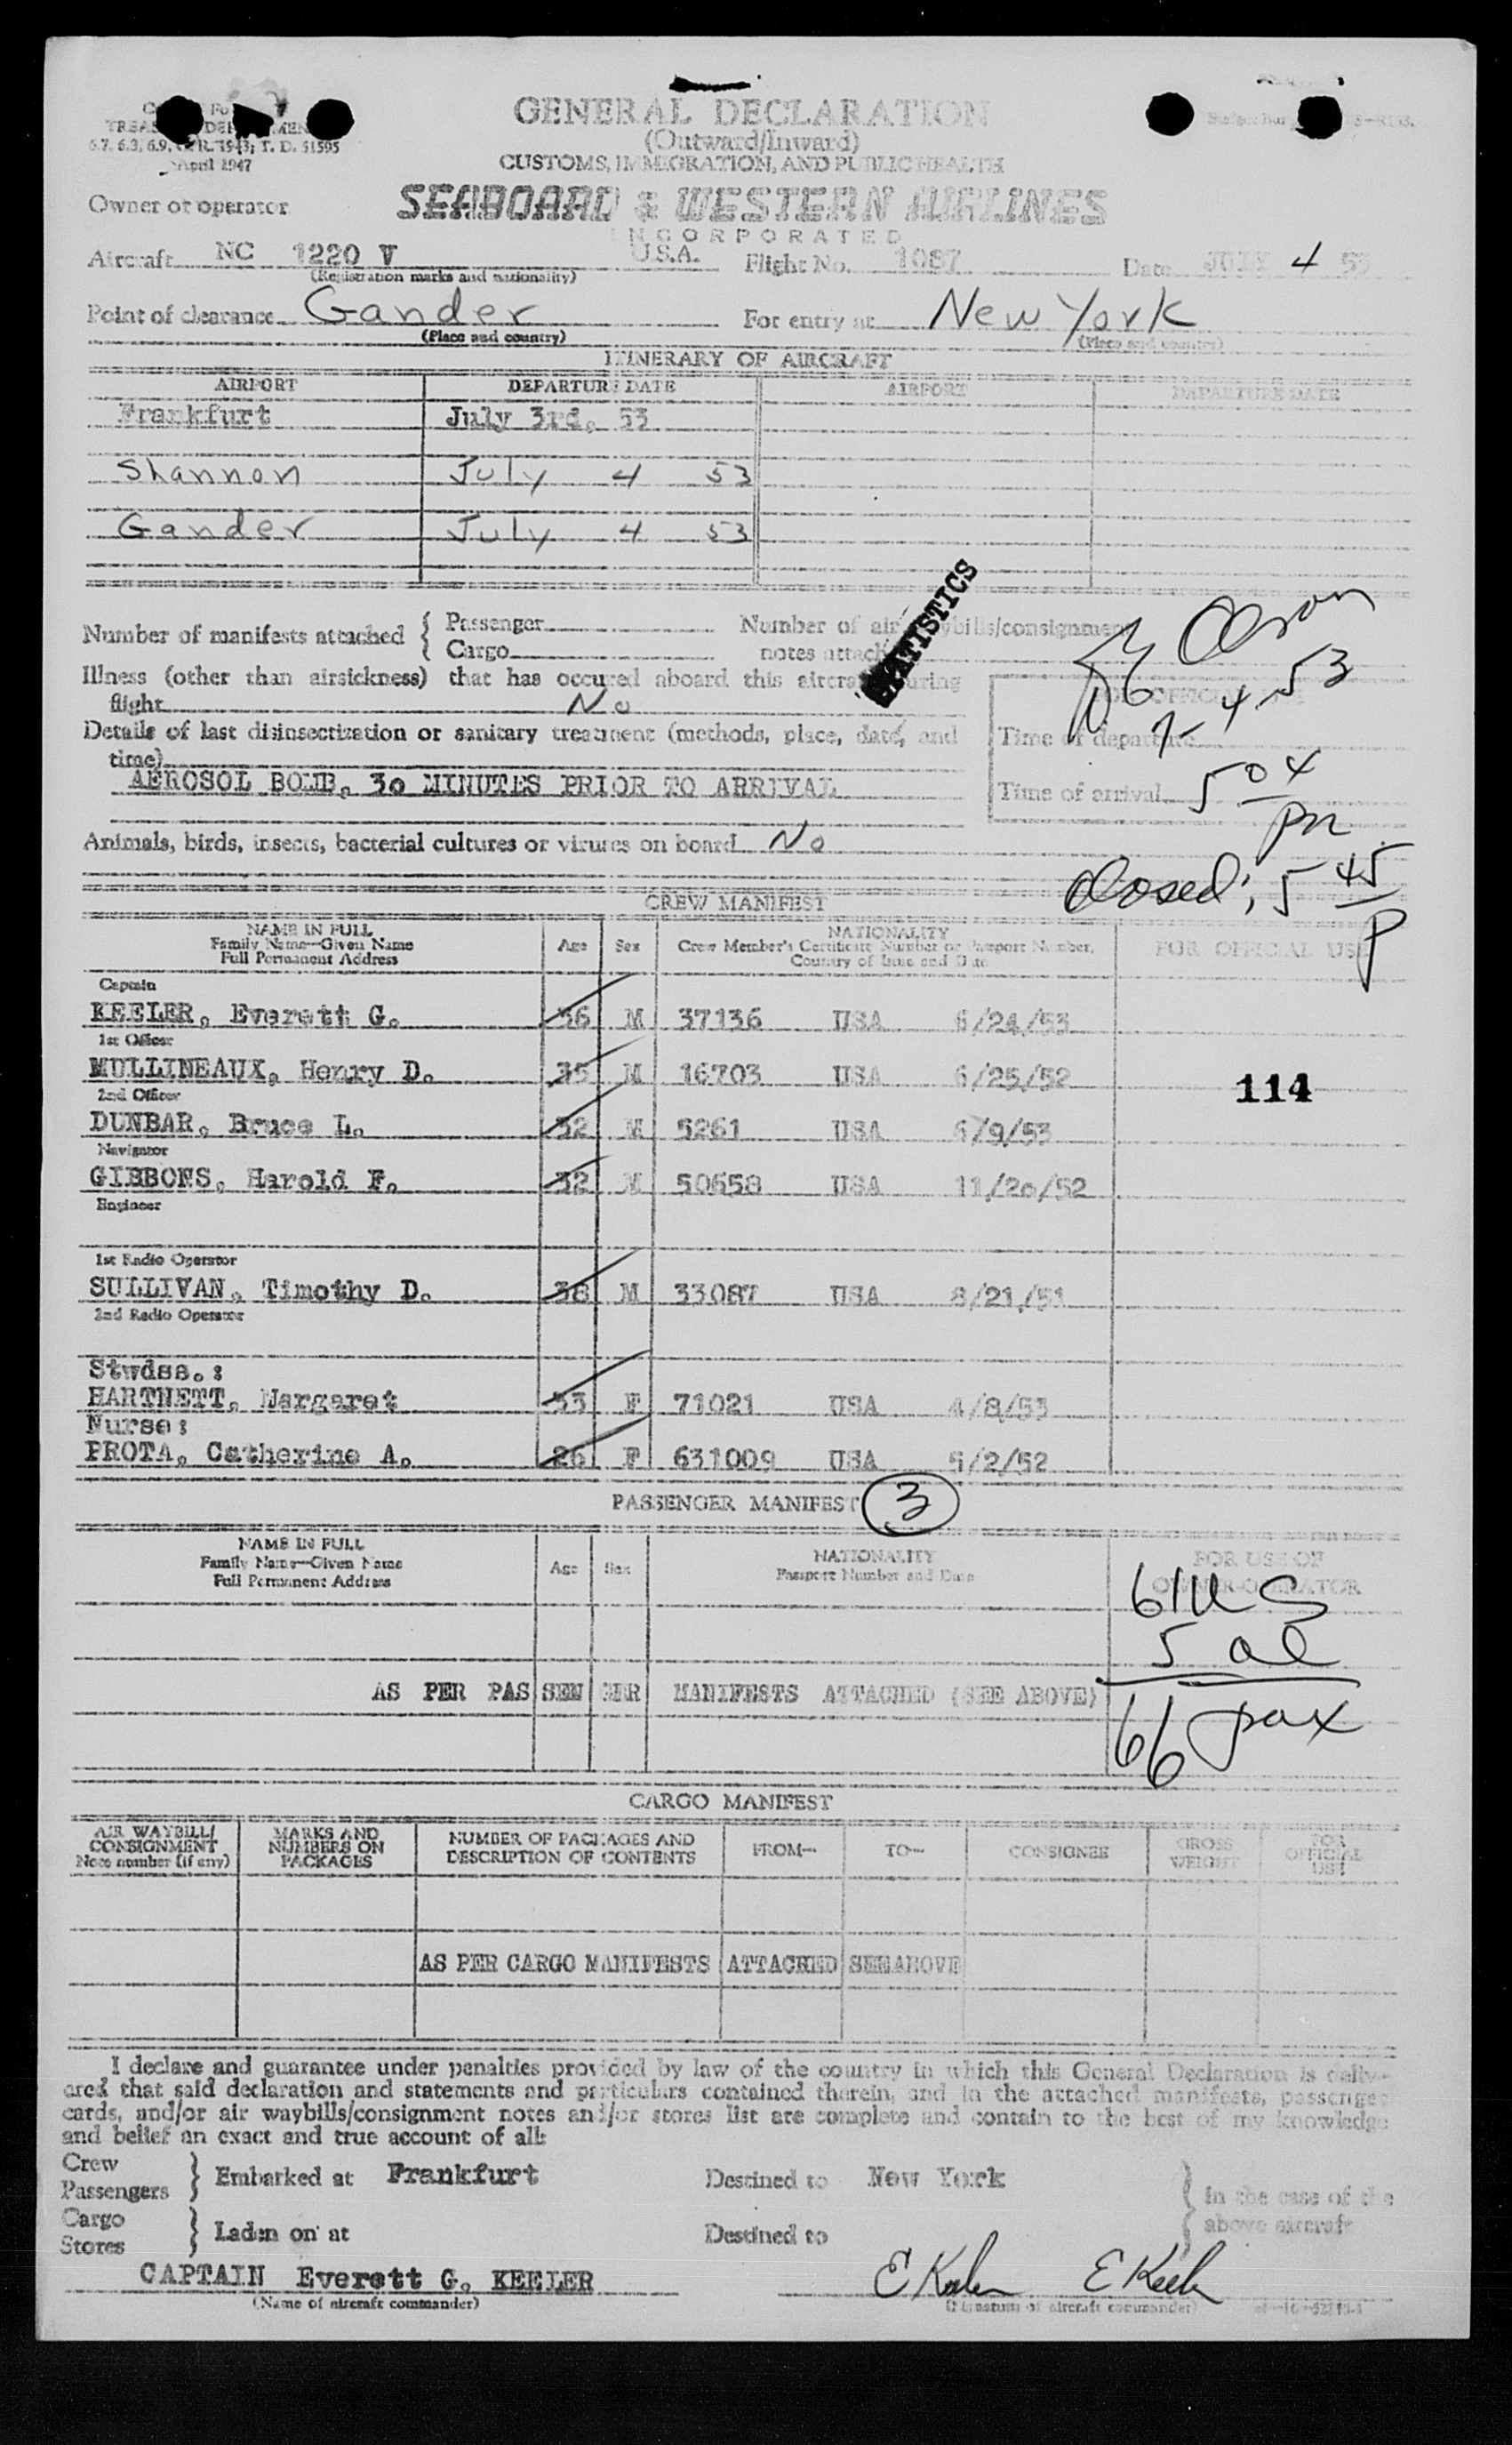 GENERAL DECLARATION
(Outward/Inward)
CUSTOMS, IMMIGRATION, AND PUBLIC HEALTH
6.7, 6.3, 6.9, 1943; T. D. 51595
April 1947
Owner or operator SEABOARD & WESTERN AIRLINES
INCORPORATED
Aircraft NC 1220 V U.S.A. Flight No. 1087 Date JULY 4 53
(Registration marks and nationality)
Point of clearance Gander For entry at New York
(Place and country) (Place and country)
ITINERARY OF AIRCRAFT
AIRPORT DEPARTURE DATE AIRPORT DEPARTURE DATE
Frankfurt July 3rd, 53
Shannon July 4 53
Gander July 4 53
STATISTICS
Number of manifests attached { Passenger Number of air waybills/consignment
Cargo notes attached
Olson
7-4-53
Illness (other than airsickness) that has occured aboard this aircraft during
flight No
Details of last disinsectization or sanitary treatment (methods, place, date, and
time)
AEROSOL BOMB, 30 MINUTES PRIOR TO ARRIVAL
Time of departure
Time of arrival 5 04 pm
Animals, birds, insects, bacterial cultures or viruses on board No
Closed; 5 45 P
CREW MANIFEST
NAME IN FULL
Family Name—Given Name
Full Permanent Address
Age Sex
NATIONALITY
Crew Member's Certificate Number or Passport Number,
Country of Issue and Date
FOR OFFICIAL USE
Captain
KEELER, Everett G. 36 M 37136 USA 6/24/53
1st Officer
MULLINEAUX, Henry D. 35 M 16703 USA 6/25/52
114
2nd Officer
DUNBAR, Bruce L. 32 M 5261 USA 6/9/53
Navigator
GIBBONS, Harold F. 32 M 50658 USA 11/20/52
Engineer
1st Radio Operator
SULLIVAN, Timothy D. 38 M 33087 USA 8/21/51
2nd Radio Operator
Stwdss.:
HARTNETT, Margaret 33 F 71021 USA 4/8/53
Nurse:
PROTA, Catherine A. 26 F 631009 USA 5/2/52
PASSENGER MANIFEST 3
NAME IN FULL
Family Name—Given Name
Full Permanent Address
Age Sex
NATIONALITY
Passport Number and Date
FOR USE OF
OWNER-OPERATOR
61 US
5 al
AS PER PASSENGER MANIFESTS ATTACHED (SEE ABOVE)
66 pax
CARGO MANIFEST
AIR WAYBILL/
CONSIGNMENT
Note number (if any)
MARKS AND
NUMBERS ON
PACKAGES
NUMBER OF PACKAGES AND
DESCRIPTION OF CONTENTS
FROM— TO— CONSIGNEE
GROSS
WEIGHT
FOR
OFFICIAL
USE
AS PER CARGO MANIFESTS ATTACHED SEE ABOVE
I declare and guarantee under penalties provided by law of the country in which this General Declaration is deliv-
ered that said declaration and statements and particulars contained therein, and in the attached manifests, passenger
cards, and/or air waybills/consignment notes and/or stores list are complete and contain to the best of my knowledge
and belief an exact and true account of all:
Crew
Passengers } Embarked at Frankfurt Destined to New York { In the case of the
Cargo above aircraft
Stores } Laden on at Destined to
CAPTAIN Everett G. KEELER E Keeler E Keeler
(Name of aircraft commander) (Signature of aircraft commander)